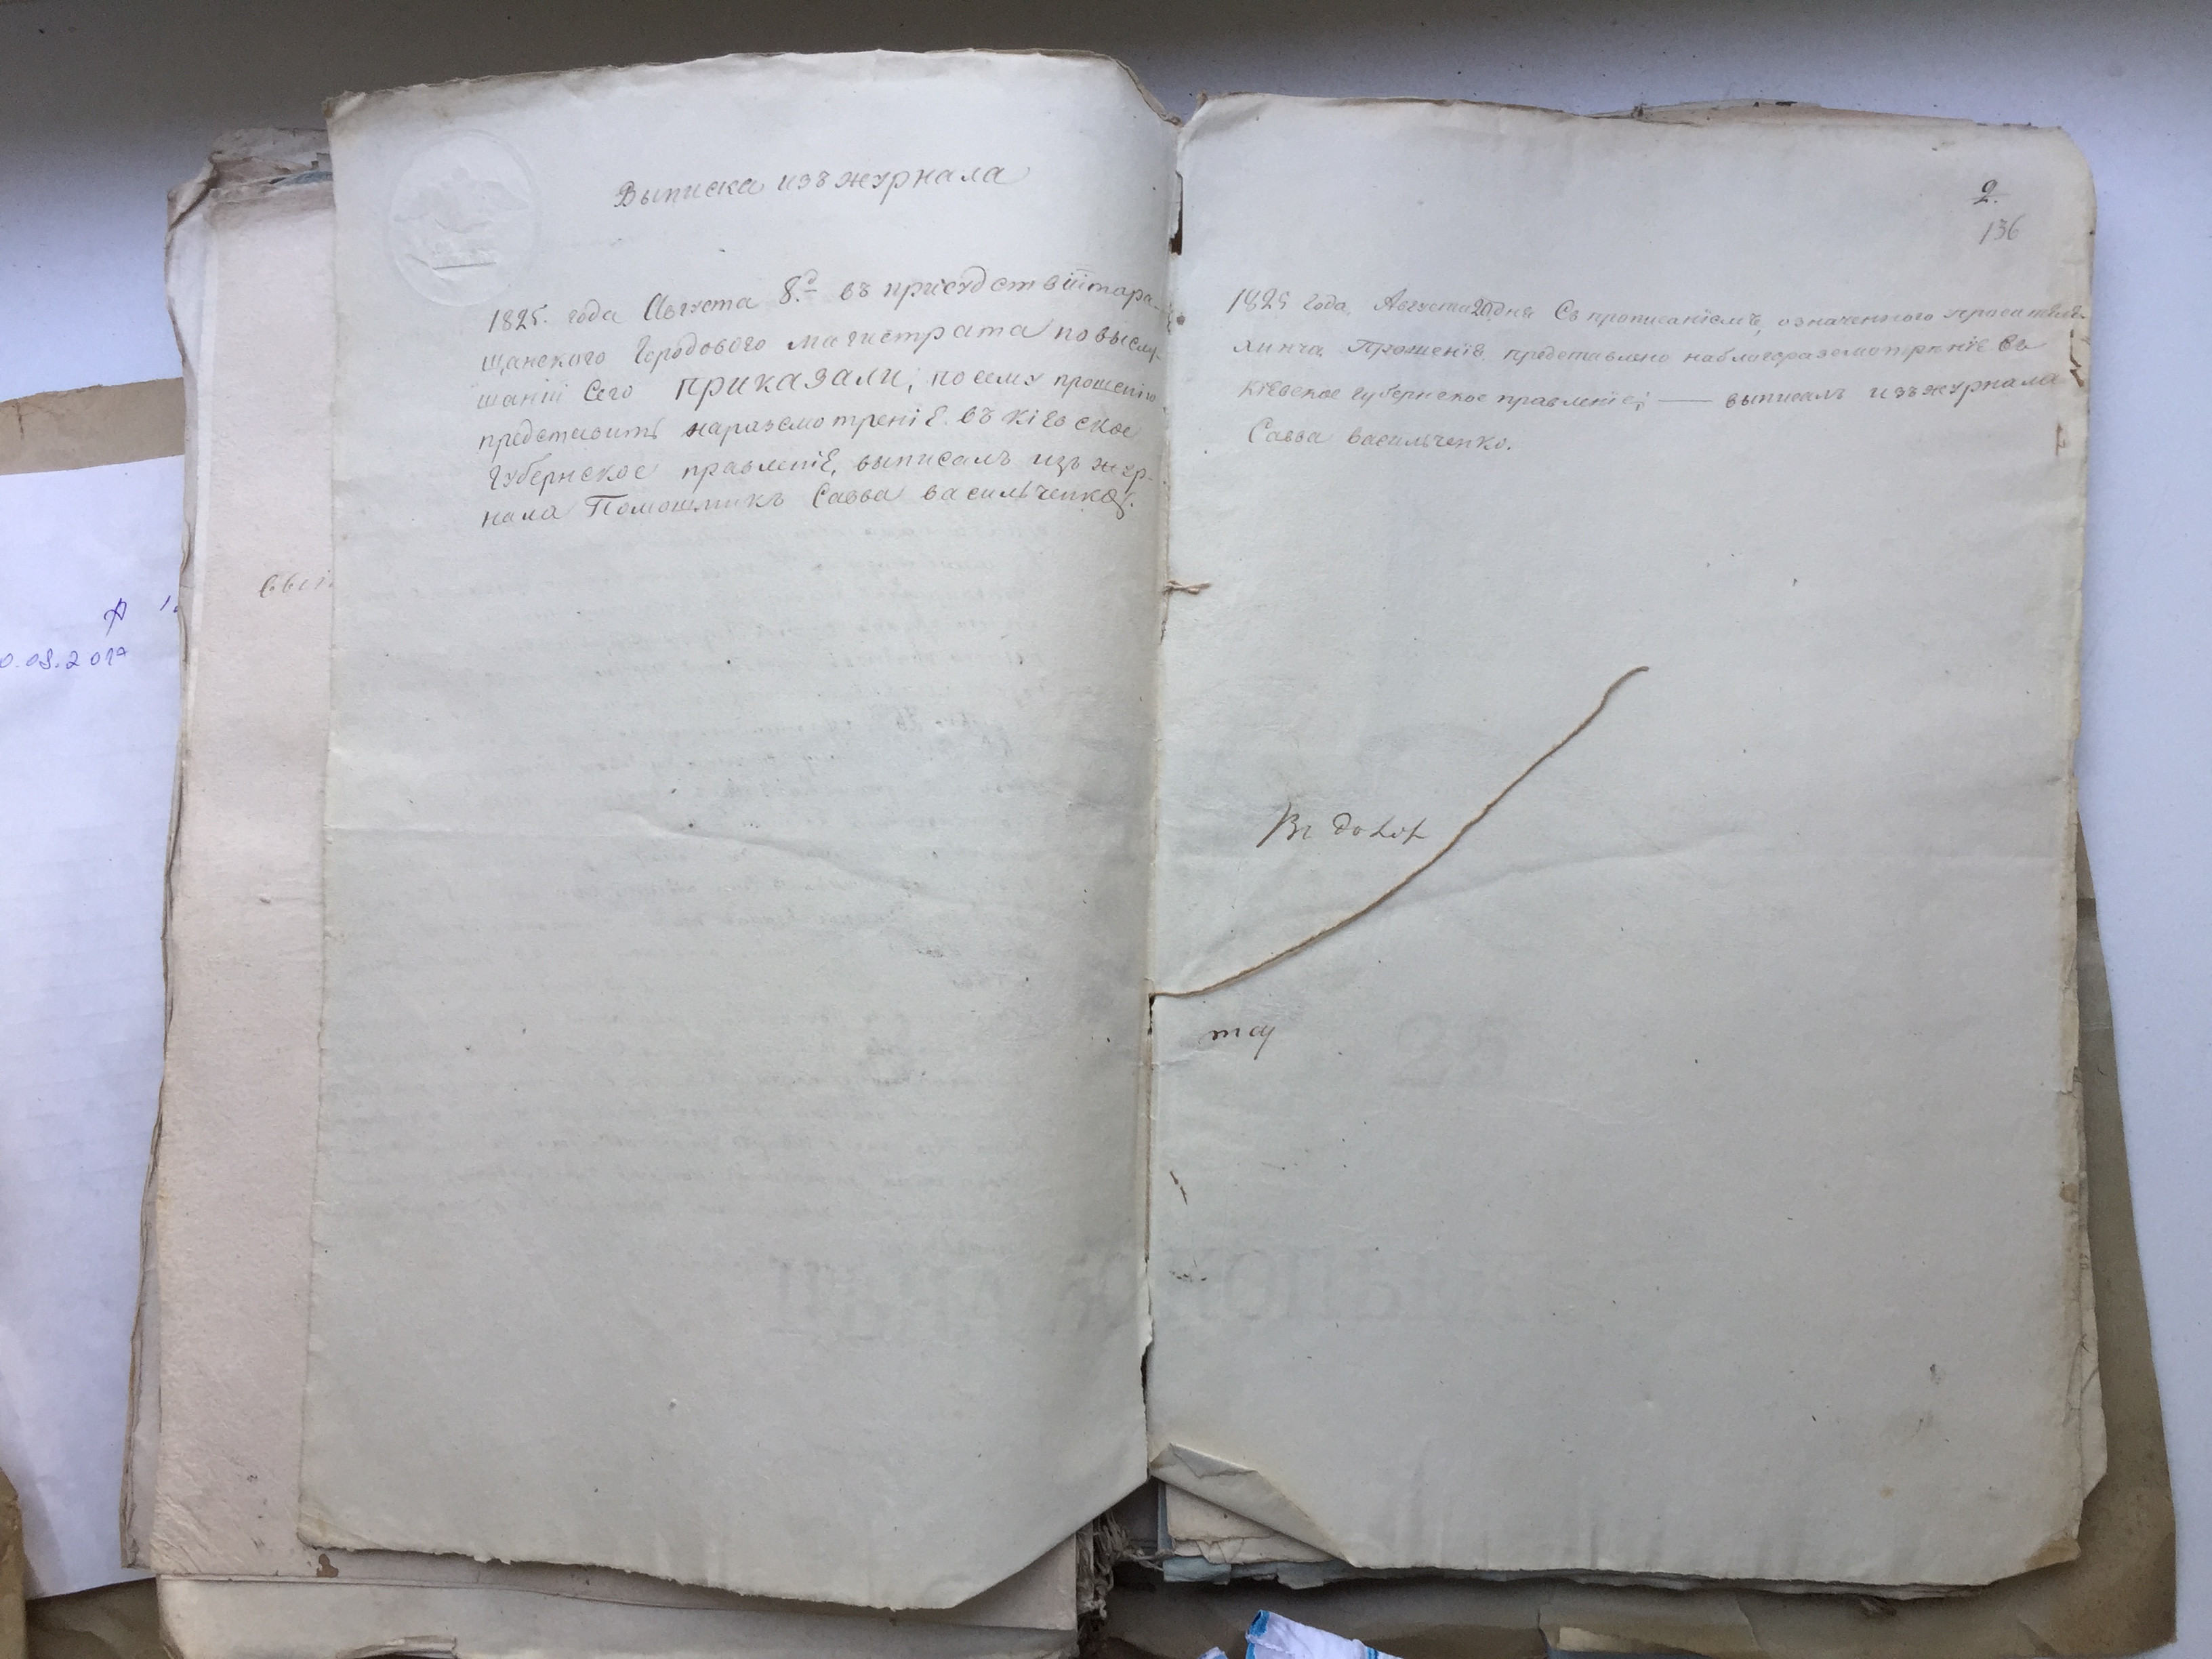 Выписка изъ журнала
1825. года Августа 8.го въ присудствіи тара-
щанского Городового магистрата по выслу-
шаніи Сего приказали; по сему прошенію
представить на разсмотреніе въ Кіевское
Губернское правленіе, выписалъ изъ жур-
нала Помошникъ Савва васильченко.
2.
136
1825 года, Августа 20 дня Съ прописаніемъ, означенного
Прошеніе представлено на благоразсмотреніе въ
Кіевское губернское правленіе; — выписалъ изъ журнала
Савва васильченко.